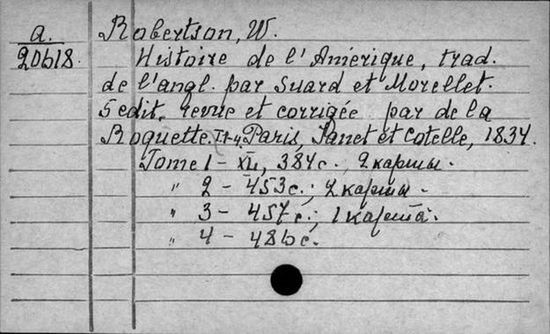 a. Robertson, W.
20618. Histoire de l'Amérique, trad.
de l'angl. par Suard et Morellet.
5 edit. revue et corrigée par de la
Roquette. I-4 Paris, Janet et Cotelle, 1834.
Tome 1 - XL, 384 c., 2 карты.
" 2 - 453 c.; 2 карты.
" 3 - 457 c.; 1 карта.
" 4 - 486 c.